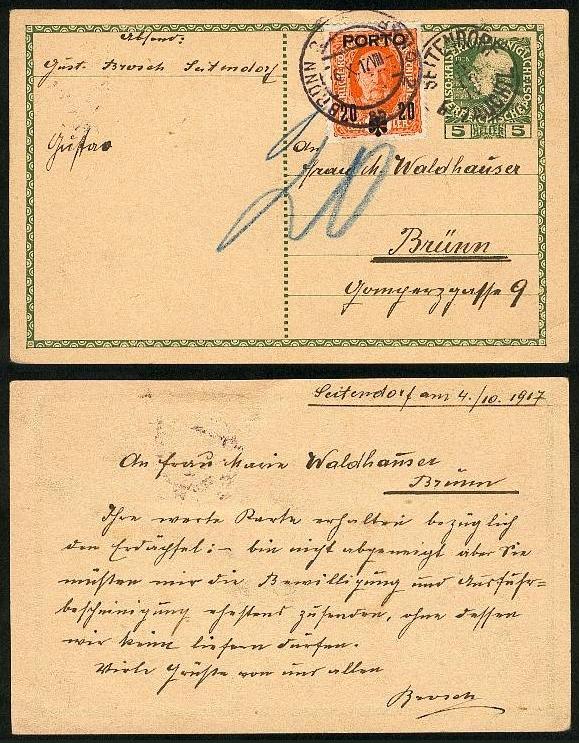 Absend:
Gust. Brosch Seitendorf
Gustav
PORTO
20 20
BRÜNN
SEITENDORF
5 HELLER 5
20
An
Frau M. Waldhauser
Brünn
Gomperzgasse 9
Seitendorf am 4./10. 1917
An Frau Marie Waldhauser
Brünn
Ihre werte Karte erhalten bezüglich
den Erdäpfel:- bin nicht abgeneigt aber Sie
müßten mir die Bewilligung und Ausfuhr=
bescheinigung ehestens zusenden, ohne dessen
wir keine liefern dürfen.
Viele Grüße von uns allen
Brosch